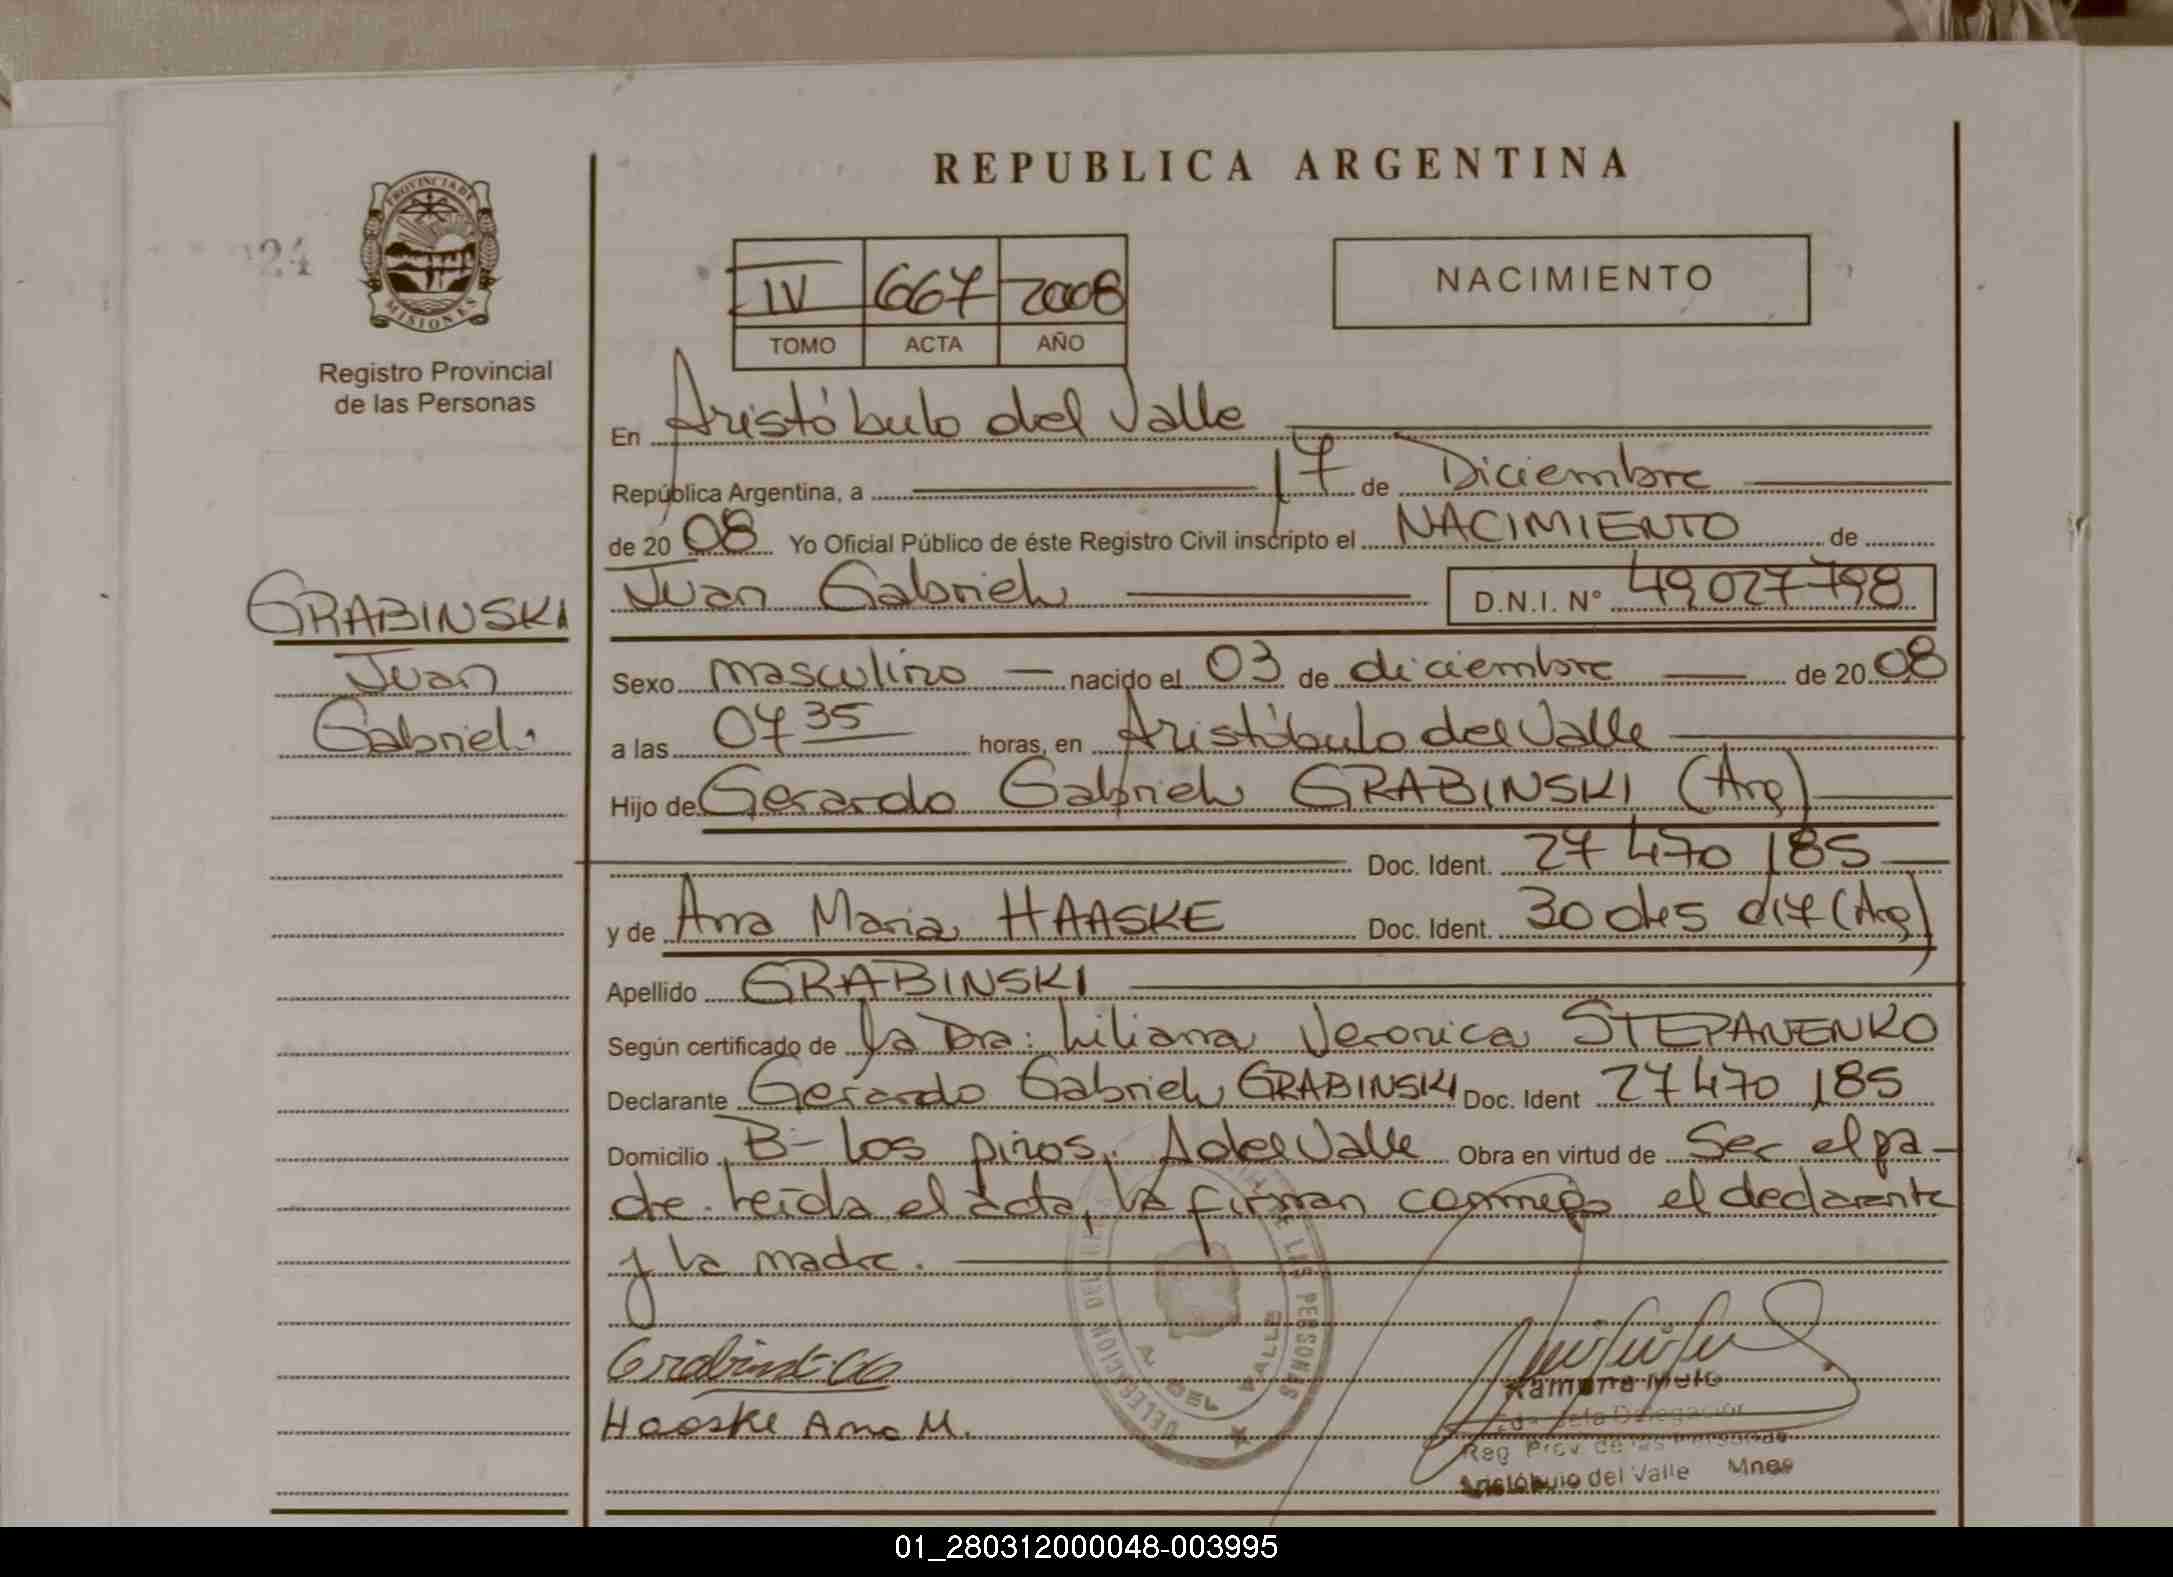 REPUBLICA ARGENTINA
24
PROVINCIA DE
MISIONES
Registro Provincial
de las Personas
IV 667 2008
TOMO ACTA AÑO
NACIMIENTO
En Aristóbulo del Valle
República Argentina, a 17 de Diciembre
de 20 08 Yo Oficial Público de éste Registro Civil inscripto el NACIMIENTO de
Juan Gabriel D.N.I. N° 49 027 798
GRABINSKI
Juan
Gabriel.
Sexo masculino nacido el 03 de diciembre de 20 08
a las 07 35 horas, en Aristóbulo del Valle
Hijo de Gerardo Gabriel GRABINSKI (Arg)
Doc. Ident. 27 470 185
y de Ana Maria HAASKE Doc. Ident. 30 (Arg)
Apellido GRABINSKI
Según certificado de la Dra: Liliana Veronica STEPANENKO
Declarante Gerardo Gabriel GRABINSKI Doc. Ident 27 470 185
Domicilio B- Los pinos, A del Valle Obra en virtud de Ser el pa-
dre. Leída el acta, la firman conmigo el declarante
y la madre.
DELEGACION DEL DE LAS PERSONAS
A. DEL VALLE
Haaske Ana M.
Ramona
Jefa Delegación
Reg Prov. de las Personas
Aristóbulo del Valle Mnes
01_280312000048-003995